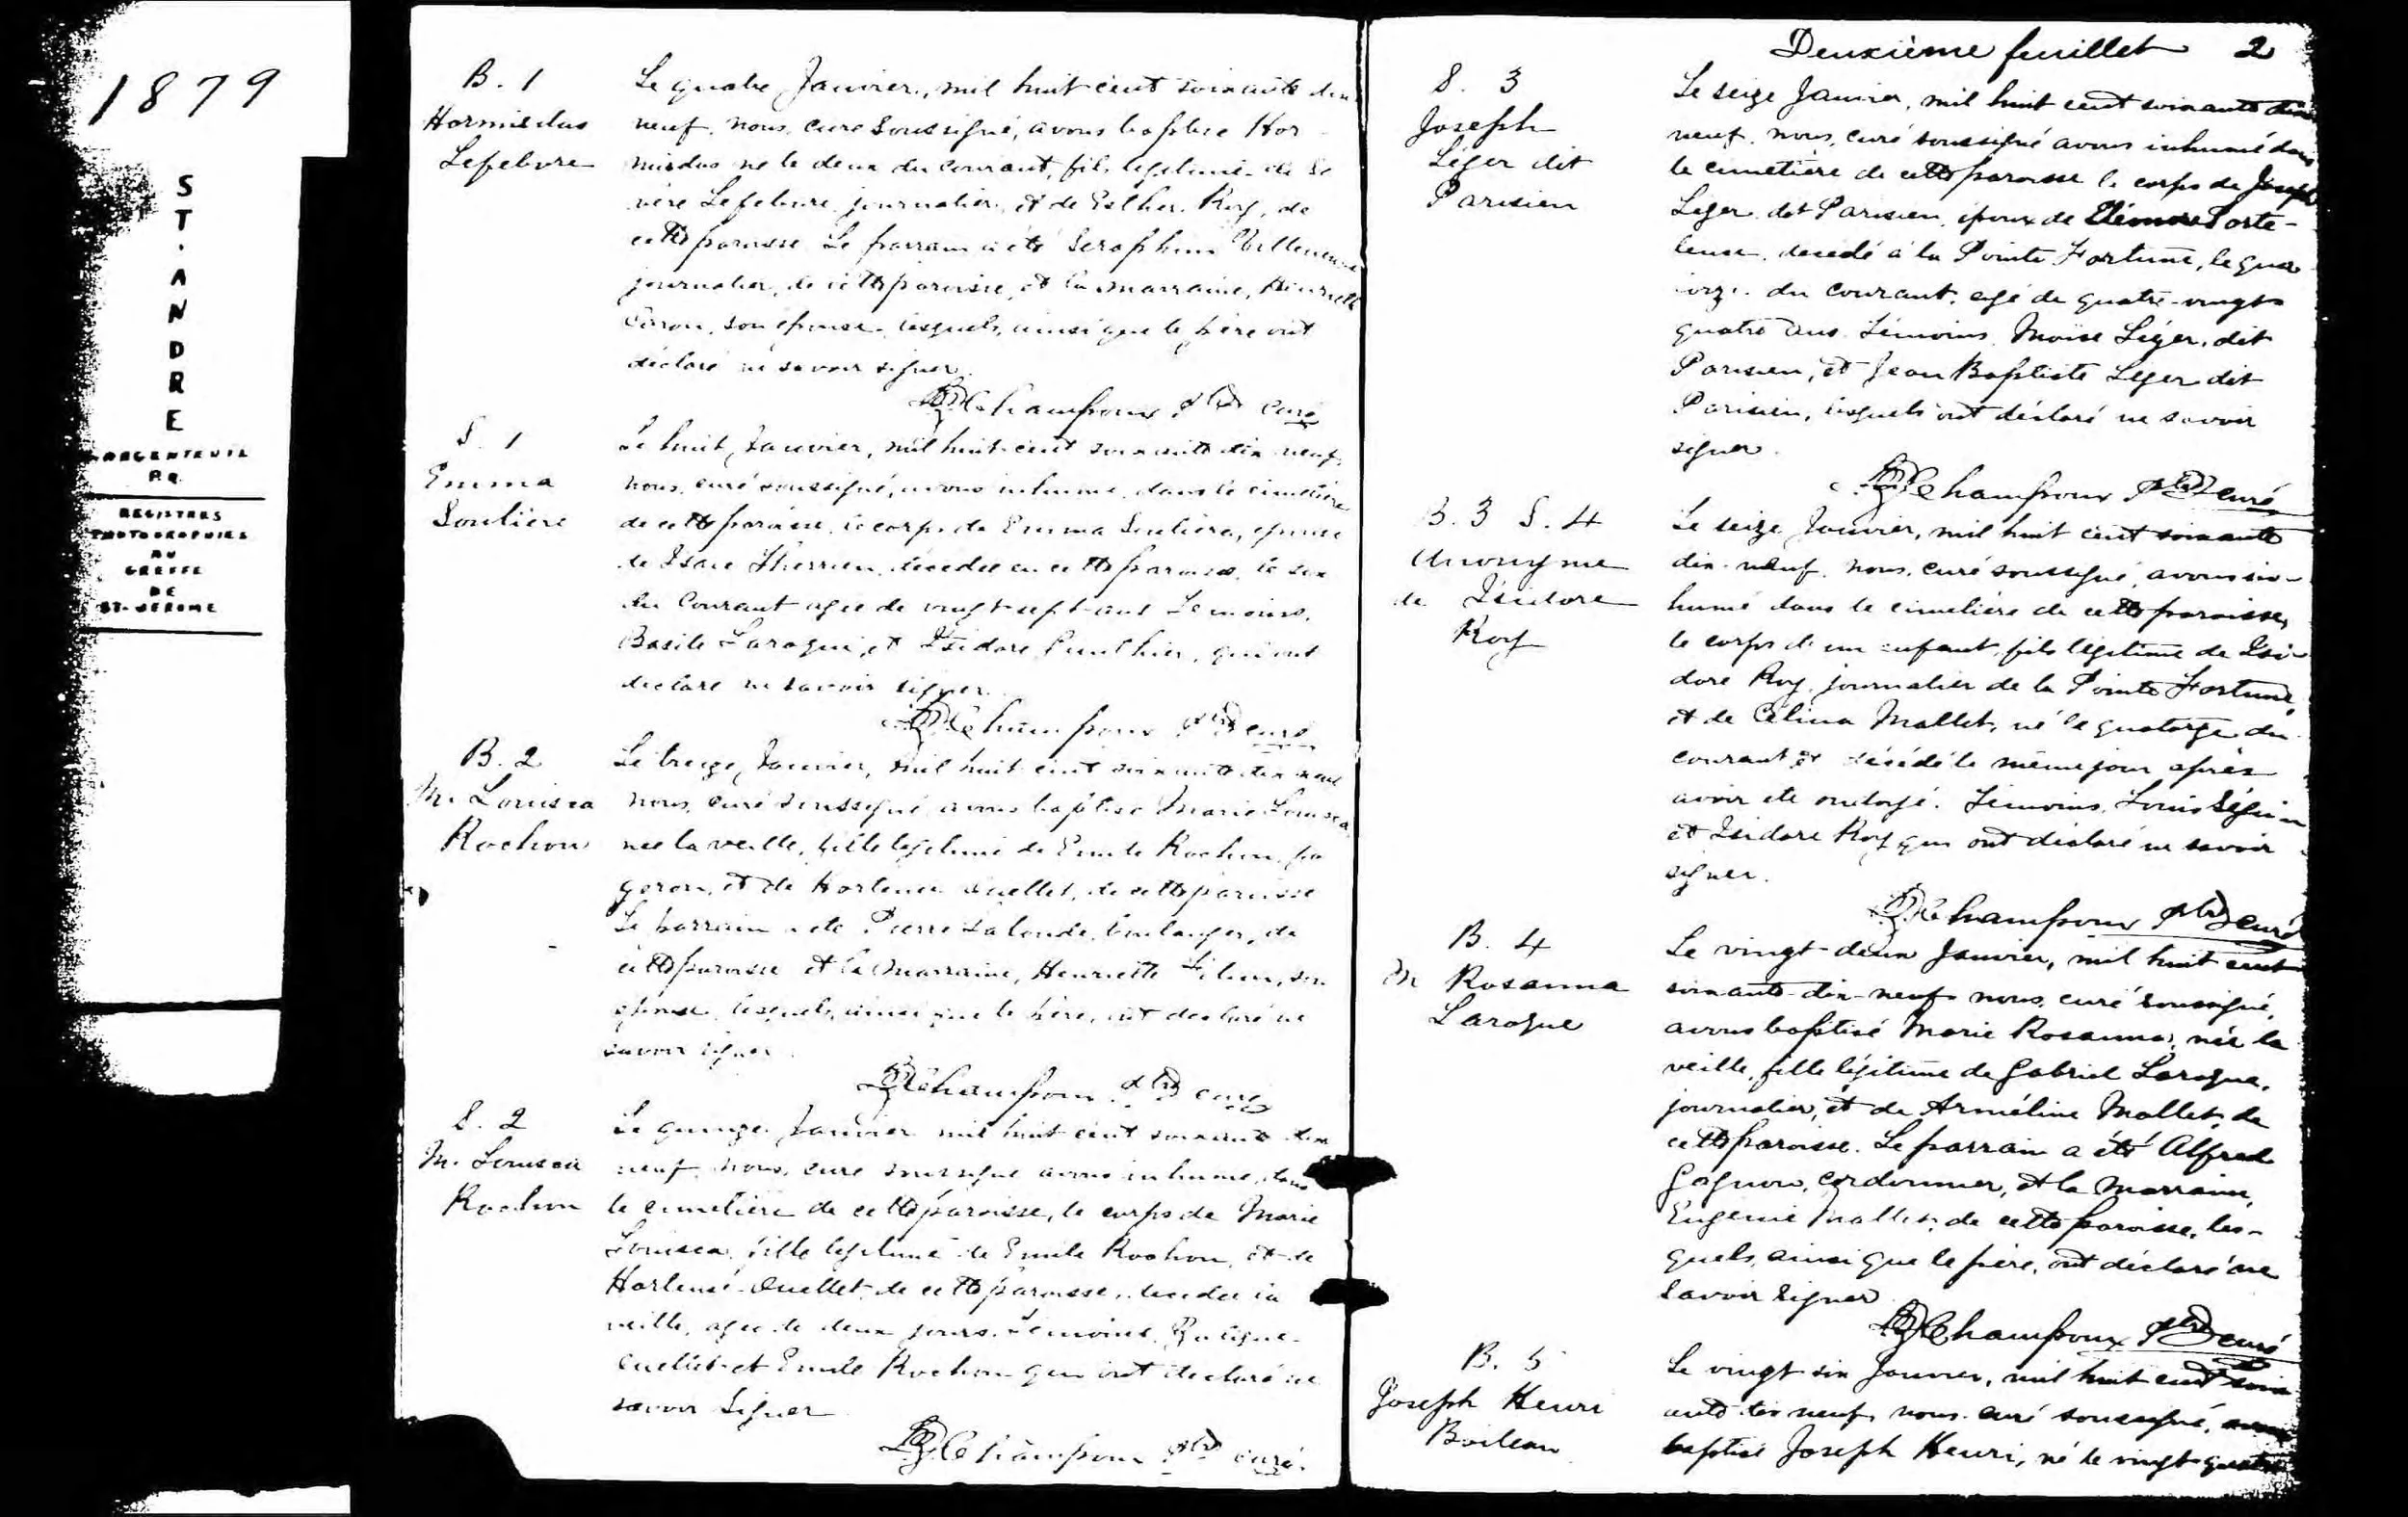 1879
ST. ANDRE
ARGENTEUIL
P.Q.
REGISTRES
PHOTOGRAPHIES
AU
GREFFE
DE
ST-JEROME
B. 1
Hormisdas
Lefebvre
Le quatre Janvier, mil huit cent soixante dix
neuf, nous, curé soussigné, avons baptisé Hor
misdas né le deux du courant, fils légitime de Sé
vère Lefebvre journalier, et de Esther Roy, de
cette paroisse. Le parrain a été Séraphin Villeneuve
journalier, de cette paroisse, et la marraine, Henriette
son épouse, lesquels, ainsi que le père ont
déclaré ne savoir signer.
Champoux Ptre curé
S. 1
Emma
Soulière
Le huit Janvier, mil huit cent soixante dix neuf,
nous, curé soussigné, avons inhumé, dans le cimetière
de cette paroisse, le corps de Emma Soulière, épouse
de Isaie Therrien, décédée en cette paroisse, le six
du courant agée de vingt-sept ans Témoins,
Basile Laroque, et Isidore qui ont
déclaré ne savoir signer.
Champoux Ptre curé
B. 2
M. Louisea
Rochon
Le treize Janvier, mil huit cent soixante dix neuf
nous, curé soussigné, avons baptisé Marie Louisea
née la veille, fille légitime de Emile Rochon, fo
geron, et de Hortense Ouellet, de cette paroisse
Le parrain a été Pierre Lalonde, boulanger, de
cette paroisse et la marraine, Henriette Filion, son
épouse, lesquels, ainsi que le père, ont déclaré ne
savoir signer.
Champoux Ptre curé
S. 2
M. Louisea
Rochon
Le quinze Janvier mil huit cent soixante dix
neuf, nous, curé soussigné avons inhumé, dans
le cimetière de cette paroisse, le corps de Marie
Louisea, fille légitime de Emile Rochon, et de
Hortense Ouellet de cette paroisse, décédée la
veille, agée de deux jours. Témoins,
Ouellet et Emile Rochon qui ont déclaré ne
savoir signer
Champoux Ptre curé.
Deuxième feuillet 2
S. 3
Joseph
Léger dit
Parisien
Le seize Janvier, mil huit cent soixante dix
neuf, nous, curé soussigné avons inhumé dans
le cimetière de cette paroisse le corps de Joseph
Léger dit Parisien, époux de Porte-
leuse, décédé à la Pointe Fortune, le qua
torze du courant, agé de quatre-vingt
quatre ans. Témoins, Moïse Léger, dit
Parisien, et Jean Baptiste Léger dit
Parisien, lesquels ont déclaré ne savoir
signer.
Champoux Ptre curé
B. 3 S. 4
Anonyme
de Isidore
Roy
Le seize Janvier, mil huit cent soixante
dix-neuf, nous, curé soussigné, avons in-
humé dans le cimetière de cette paroisse,
le corps d'un enfant, fils légitime de Isi-
dore Roy, journalier de la Pointe Fortune,
et de Célina Mallet, né le quatorze du
courant et décédé le même jour après
avoir été ondoyé. Témoins, Louis Séguin
et Isidore Roy qui ont déclaré ne savoir
signer.
Champoux Ptre curé
B. 4
M Rosanna
Laroque
Le vingt-deux Janvier, mil huit cent
soixante-dix-neuf, nous, curé soussigné,
avons baptisé Marie Rosanna, née la
veille, fille légitime de Gabriel Laroque,
journalier, et de Arméline Mallet, de
cette paroisse. Le parrain a été Alfred
Gagnon, cordonnier, et la marraine,
Eugenie Mallet, de cette paroisse, les-
quels, ainsi que le père, ont déclaré ne
savoir signer
Champoux Ptre curé
B. 5
Joseph Henri
Boileau
Le vingt six Janvier, mil huit cent soix
ante dix neuf, nous curé soussigné, avons
baptisé Joseph Henri, né le vingt-quatre